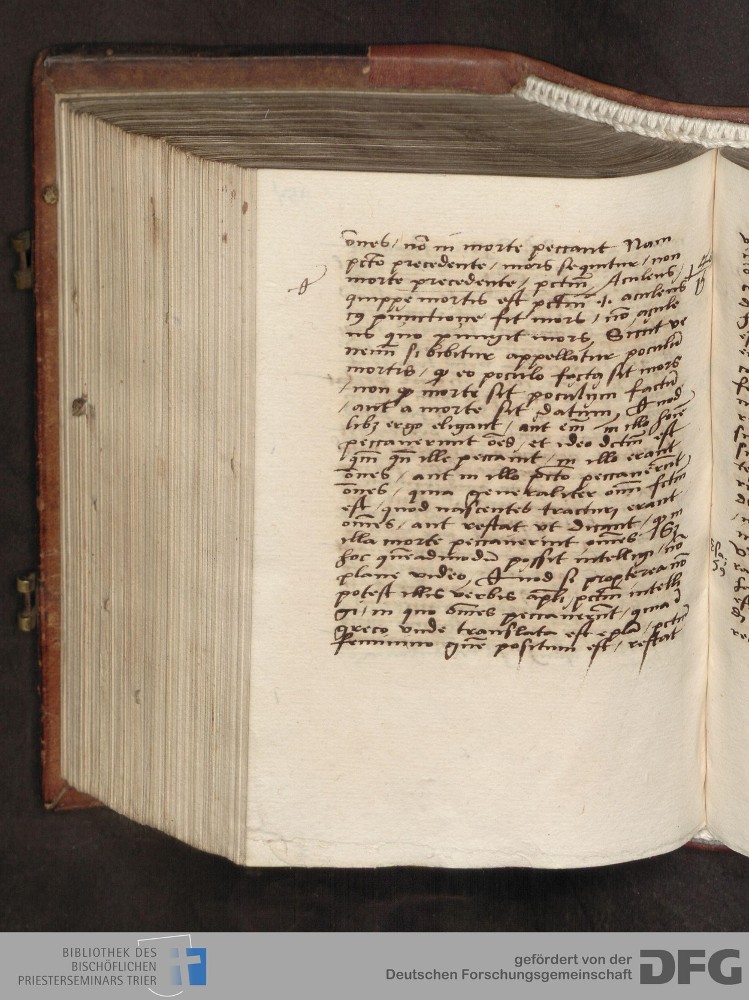 om̄es / nō in morte peccant Nam
pctō precedente / mors sequitur / non
morte precedente / pctm̄ / Aculeus /
quippe mortis est pctm̄ .i. aculeus
cꝰ punctione fit mors / nō acule
us quo pungit mors, Sicut ve
nenū si bibitur appellatur poculū
mortis / qꝫ eo poculo facta sit mors
/ non qꝫ morte sit poculum factū
/ aut a morte sit datum, Quod
libꝫ ergo eligant / aut em̄ in illo hoīe
peccauerunt oēs / et ideo dctm̄ est
qm̄ qn̄ ille peccauit / in illo erant
om̄es / aut in illo pctō peccauerunt
om̄es / quia generaliter om̄i fctm̄
est / quod nascentes tracturi erant
om̄es / aut restat vt dicant / qꝫ in
illa morte peccauerint om̄es / Sꝫ
hoc quēadmodū possit intelligi / nō
plane video, Quod si propterea nō
potest illis verbis apli pctm̄ intelli
gi / in quo om̄es peccauerūt / quia ī
greco vnde translata est epla / pctm̄
feminino gn̄e positum est / restat
BIBLIOTHEK DES
BISCHÖFLICHEN
PRIESTERSEMINARS TRIER
gefördert von der
Deutschen Forschungsgemeinschaft
DFG